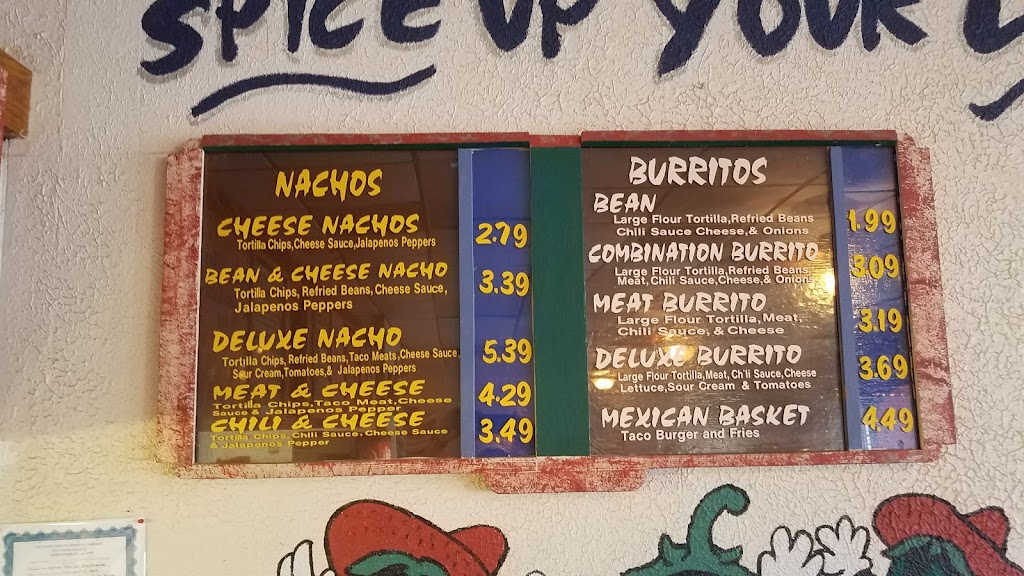 SPICE UP YOUR
NACHOS
CHEESE NACHOS 2.79
Tortilla Chips,Cheese Sauce,Jalapenos Peppers
BEAN & CHEESE NACHO 3.39
Tortilla Chips, Refried Beans,Cheese Sauce,
Jalapenos Peppers
DELUXE NACHO 5.39
Tortilla Chips, Refried Beans,Taco Meats,Cheese Sauce,
Sour Cream,Tomatoes,& Jalapenos Peppers
MEAT & CHEESE 4.29
Tortilla Chips,Taco Meat,Cheese
Sauce & Jalapenos Pepper
CHILI & CHEESE 3.49
Tortilla Chips,Chili Sauce,Cheese Sauce
& Jalapenos Pepper
BURRITOS
BEAN 1.99
Large Flour Tortilla,Refried Beans
Chili Sauce Cheese,& Onions
COMBINATION BURRITO 3.09
Large Flour Tortilla,Refried Beans
Meat,Chili Sauce,Cheese,& Onions
MEAT BURRITO 3.19
Large Flour Tortilla,Meat,
Chili Sauce, & Cheese
DELUXE BURRITO 3.69
Large Flour Tortilla,Meat, Ch'li Sauce,Cheese
Lettuce,Sour Cream & Tomatoes
MEXICAN BASKET 4.49
Taco Burger and Fries